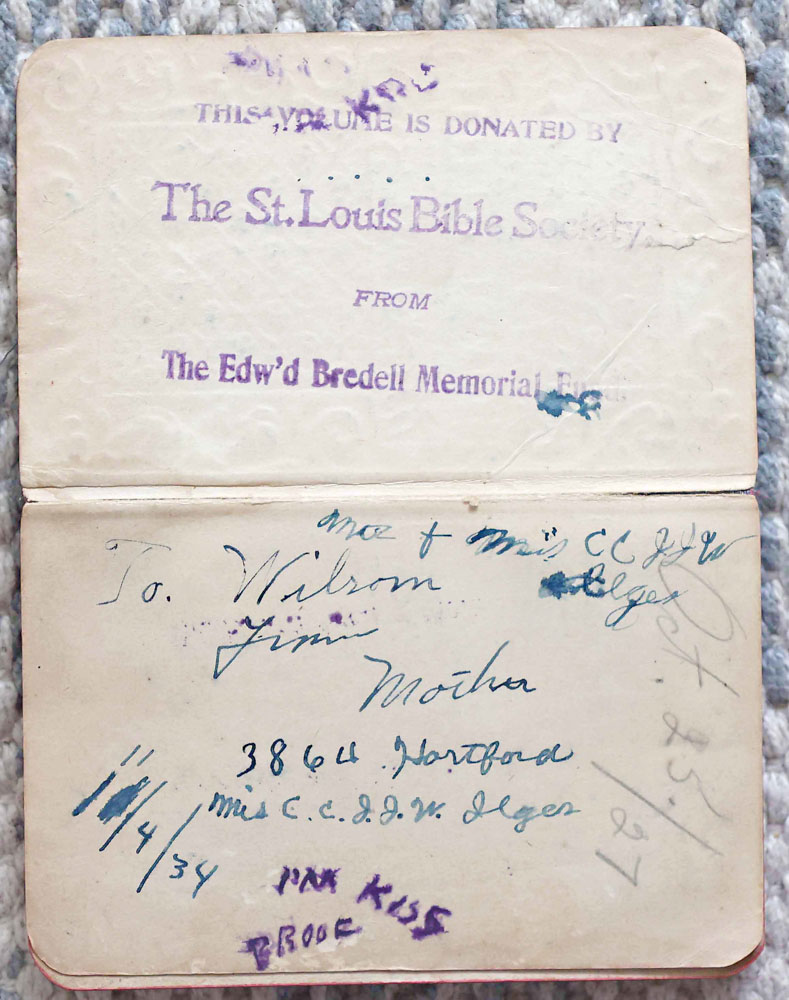 THIS VOLUME IS DONATED BY
The St. Louis Bible Society
FROM
The Edw'd Bredell Memorial Fund.
+ Mrs C C J J W
Ilger
To. Wilson
From
Mother
3864 Hartford
Mrs C. C. J. J. W. Ilger
11/4/34
Oct 25/27
KISS
PROOF